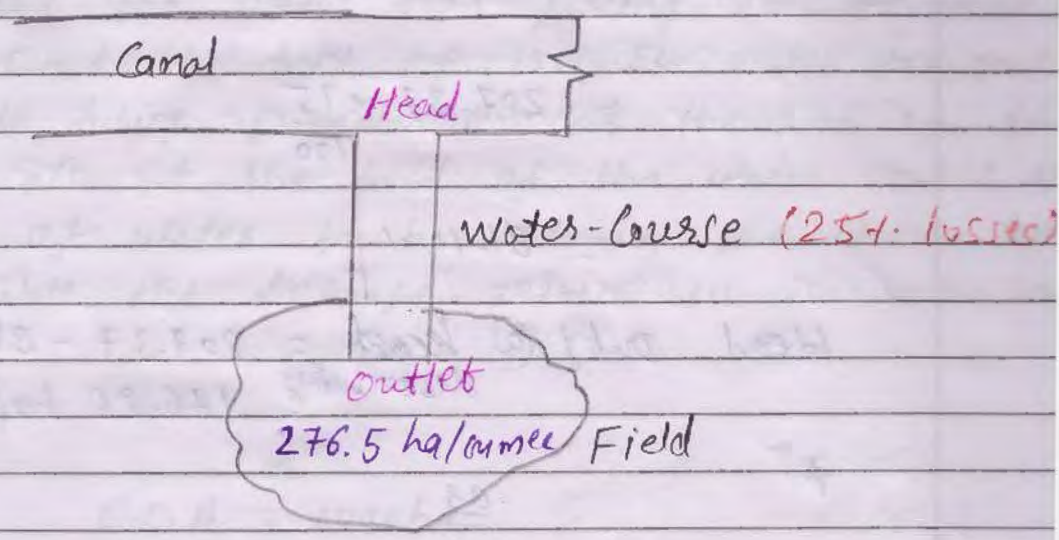 Canal
Head
Water-Course (25%. losses)
Outlet
276.5 ha/cumec Field